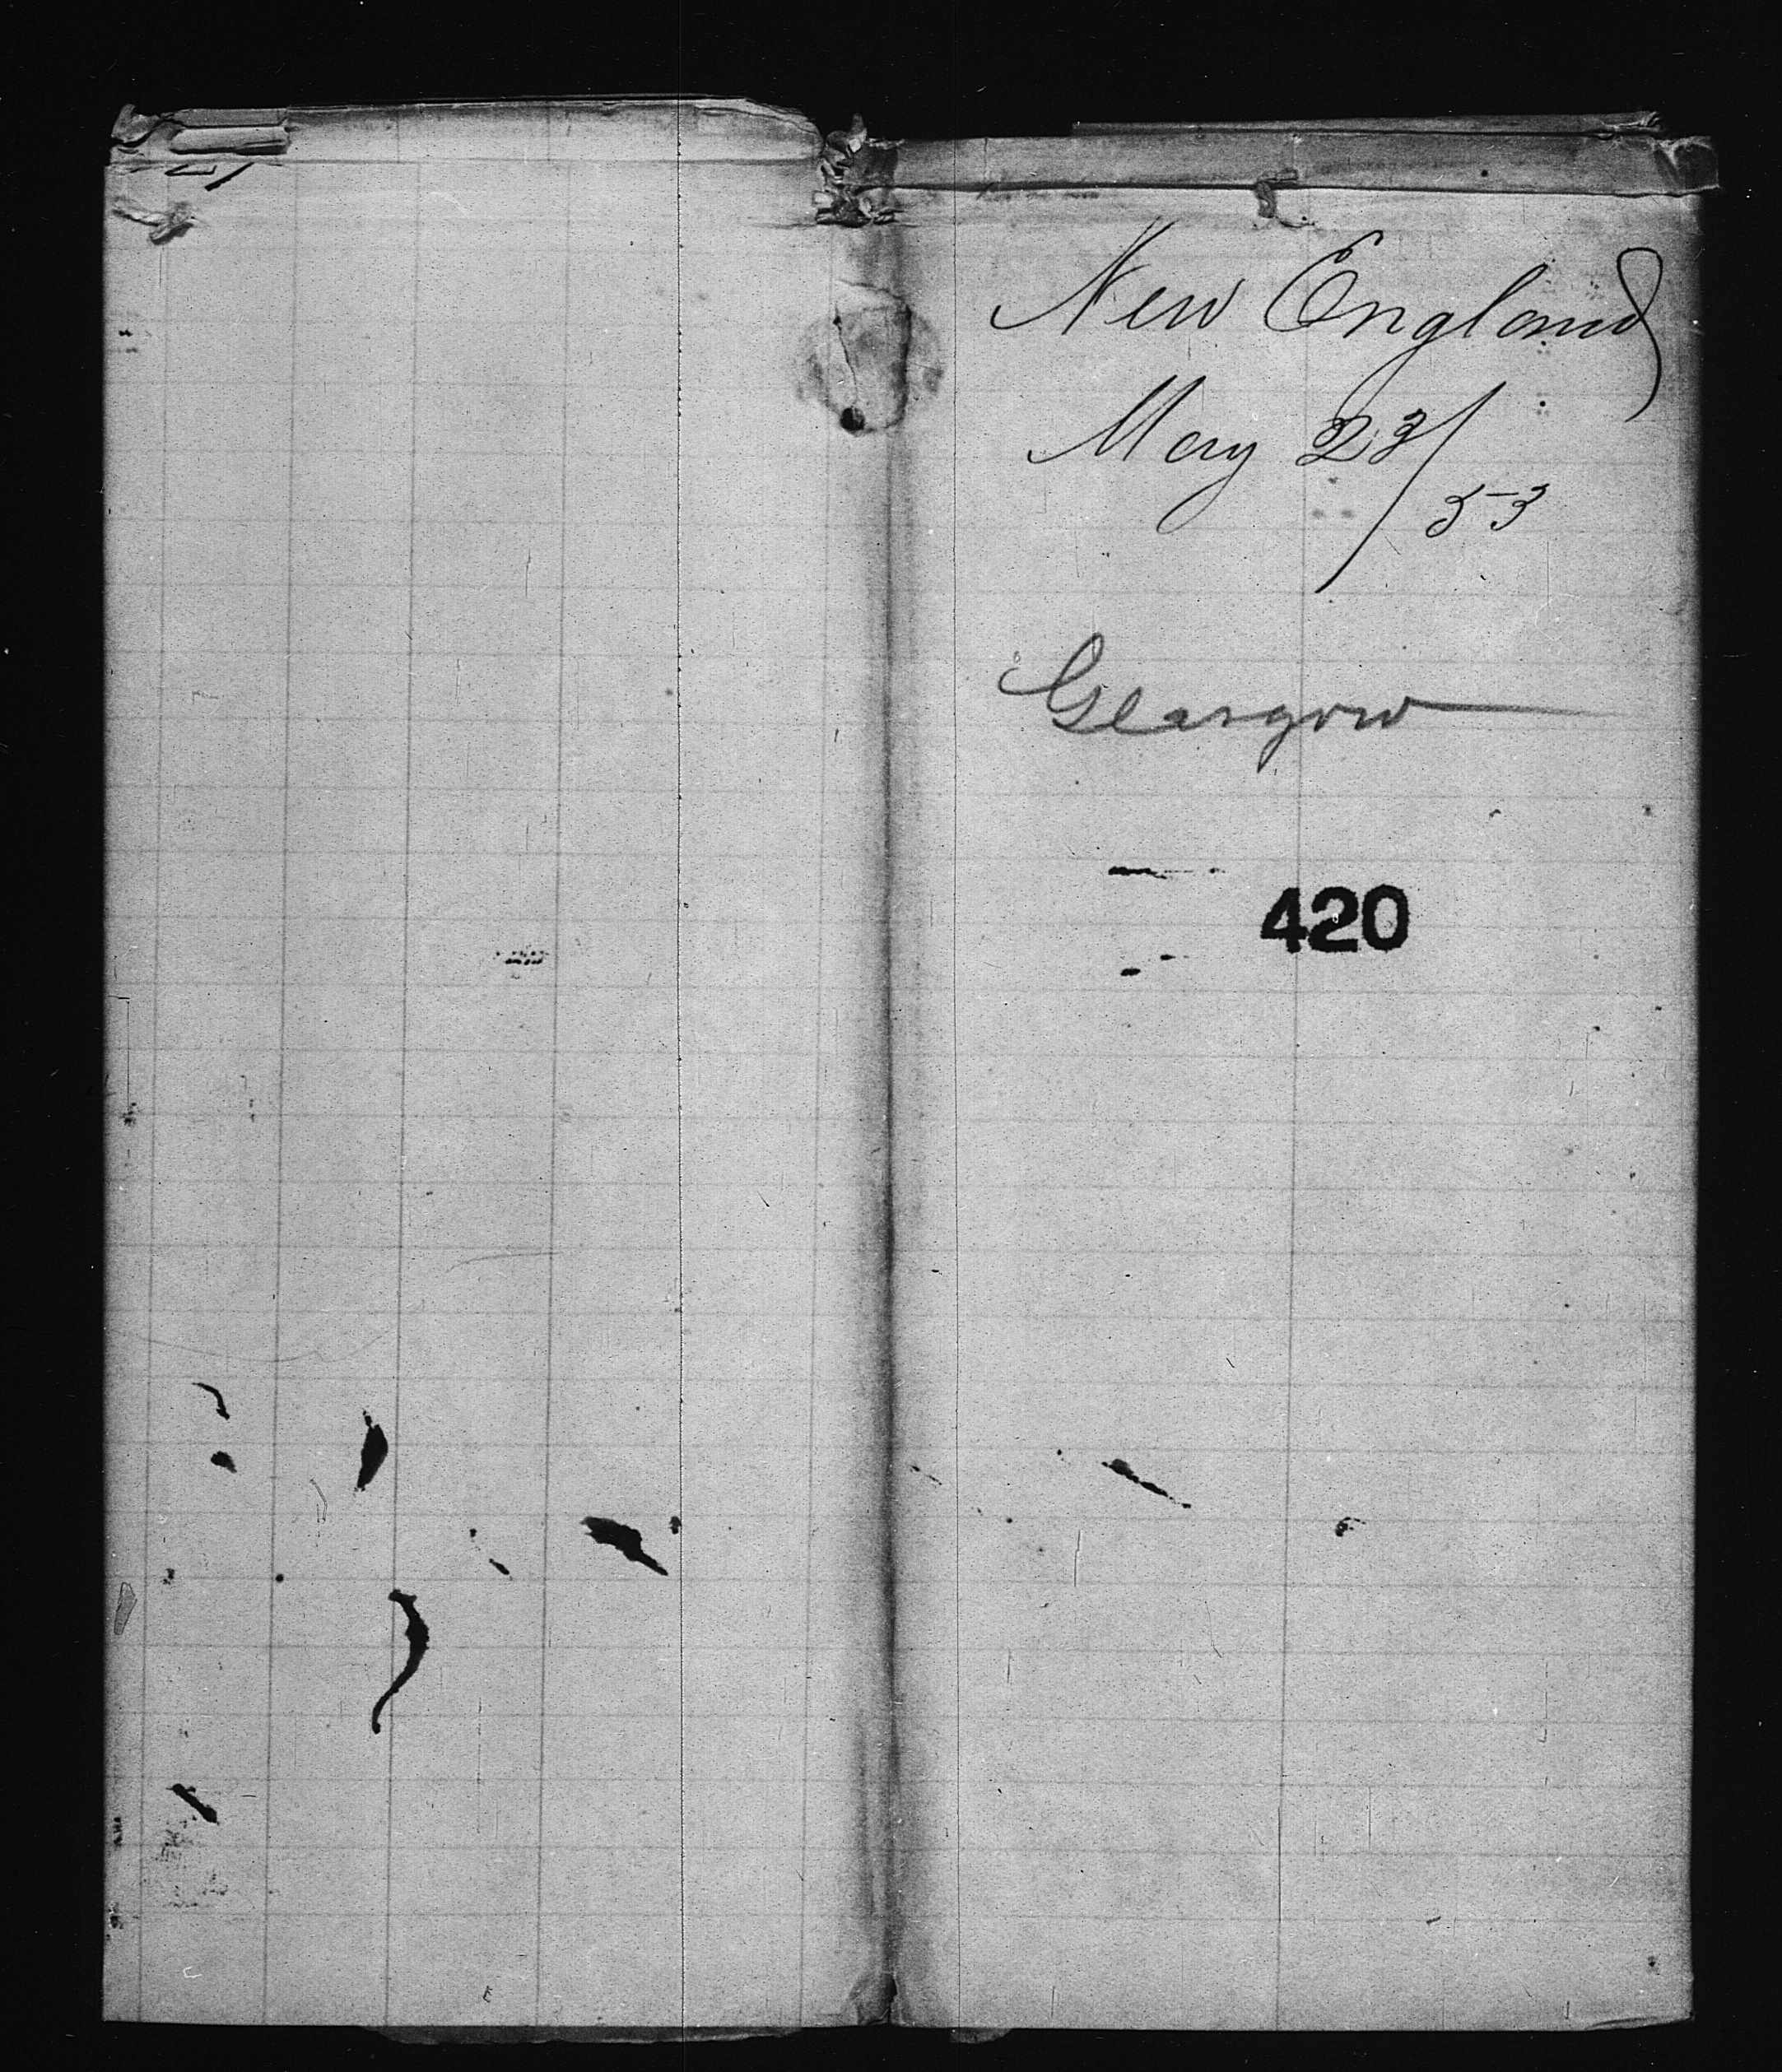 New England
May 23/
53
Glasgow
420